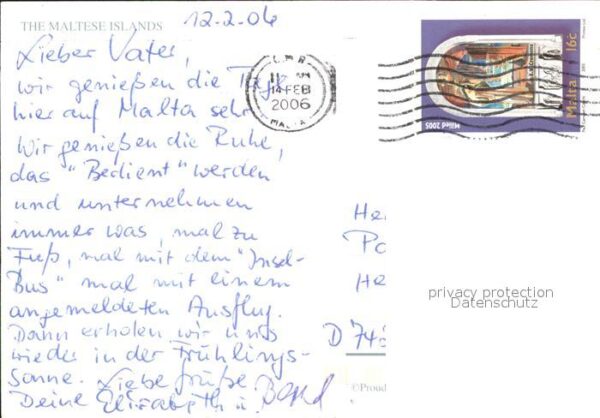 THE MALTESE ISLANDS
12-2-06
Lieber Vater,
wir genießen die Tage
hier auf Malta sehr.
Wir genießen die Ruhe,
das "Bedient" werden
und unternehmen
immer was, mal zu
Fuß, mal mit dem "Insel-
Bus" mal mit einem
angemeldeten Ausflug.
Dann erholen wir uns
wieder in der Frühlings-
sonne. Liebe Grüße
Deine Elisabeth u.
11 AM
14 FEB
2006
MALTA
Malta 16c
Milied 2005
He
Po
He
D 74
privacy protection
Datenschutz
©Proud